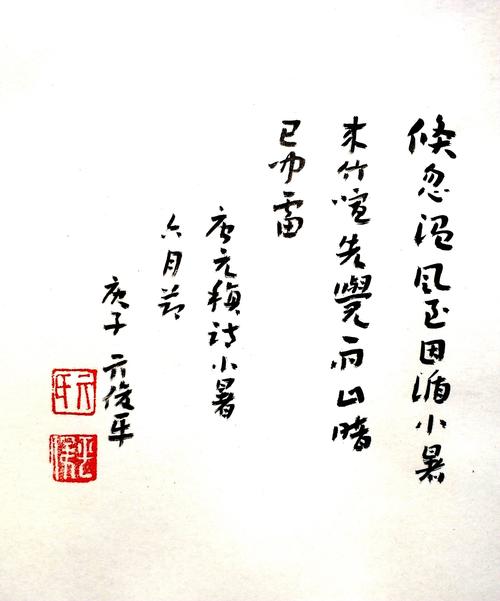 倏忽温风至因循小暑
来竹喧先覺雨山暗
已闻雷
唐元稹诗小暑
六月节
庚子 亓俊平